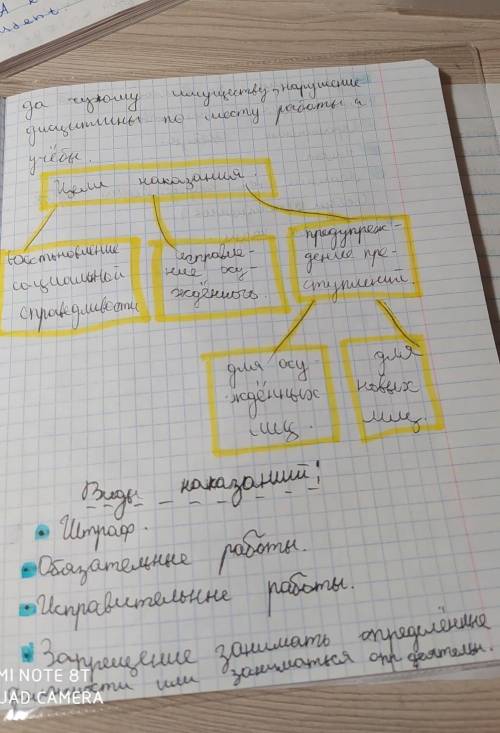 да чужому имуществу, нарушение
дисциплины по месту работы и
учёбы.
Цели наказания.
восстановление
социальной
справедливости
исправле-
ние осу-
ждённого.
предупреж-
дение пре-
ступлений.
для осу-
ждённых
лиц.
для
новых
лиц.
Виды наказаний!
Штраф.
Обязательные работы.
Исправительные работы.
Запрещение занимать определённые
или заниматься опр деятельн.
MI NOTE 8T
UAD CAMERA